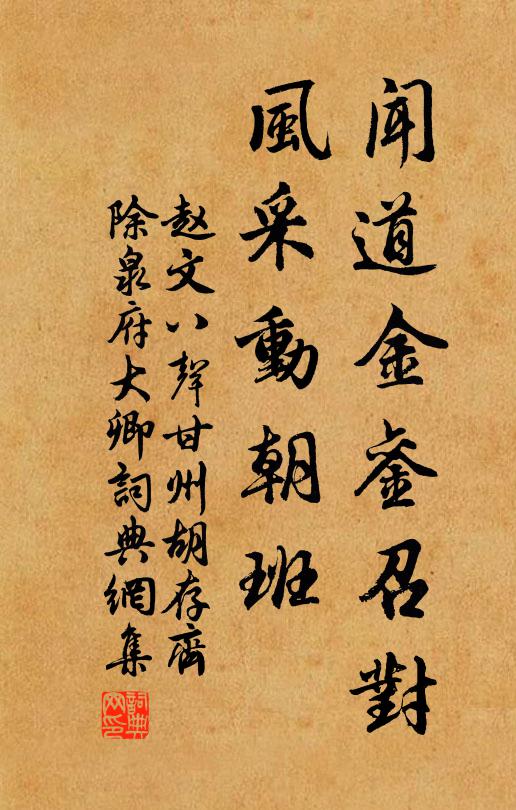 聞道金鑾召對
風采動朝班
赵文八聲甘州胡存齋
除泉府大卿詞典網集
詞典网印